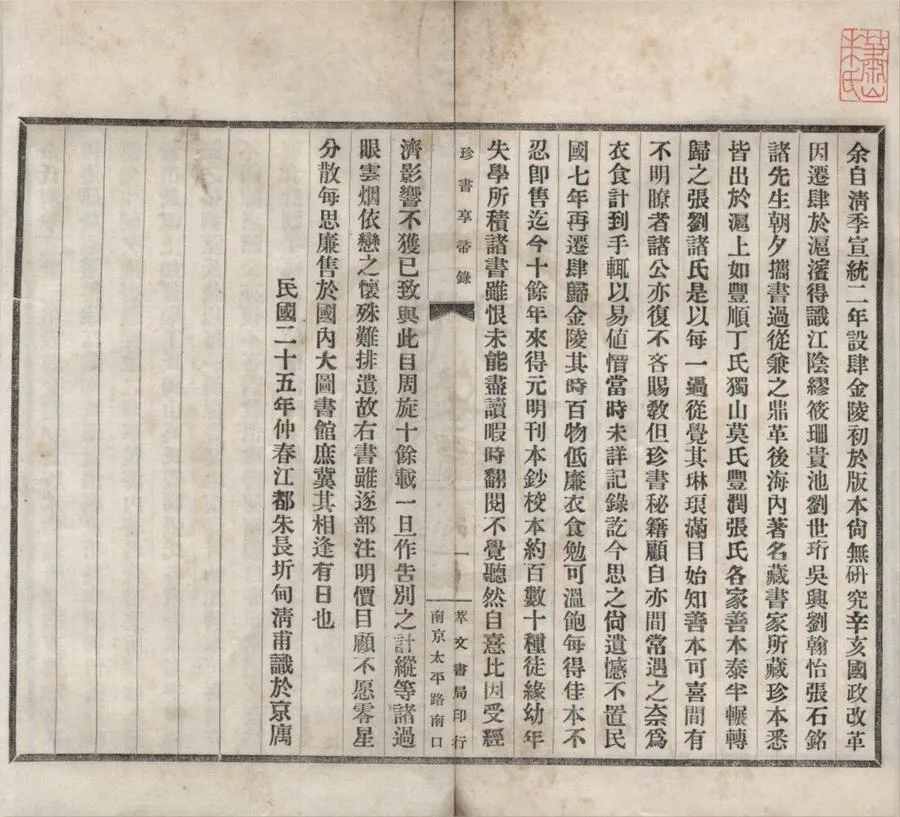 蕭山朱氏
余自淸季宣統二年設肆金陵初於版本尙無研究辛亥國政改革
因遷肆於滬濱得識江陰繆筱珊貴池劉世珩吳興劉翰怡張石銘
諸先生朝夕攜書過從兼之鼎革後海內著名藏書家所藏珍本悉
皆出於滬上如豐順丁氏獨山莫氏豐潤張氏各家善本泰半輾轉
歸之張劉諸氏是以每一過從覺其琳琅滿目始知善本可喜間有
不明瞭者諸公亦復不吝賜敎但珍書秘籍顧自亦間常遇之奈爲
衣食計到手輒以易値惜當時未詳記錄訖今思之尙遺憾不置民
國七年再遷肆歸金陵其時百物低廉衣食勉可溫飽每得佳本不
忍卽售迄今十餘年來得元明刊本鈔校本約百數十種徒緣幼年
失學所積諸書雖恨未能盡讀暇時翻閱不覺聽然自憙比因受經
珍書享帚錄
一
萃文書局印行
南京太平路南口
濟影響不獲已致與此目周旋十餘載一旦作吿別之計縱等諸過
眼雲烟依戀之懷殊難排遣故右書雖逐部注明價目顧不愿零星
分散每思廉售於國內大圖書館庶冀其相逢有日也
民國二十五年仲春江都朱長圻甸淸甫識於京寓